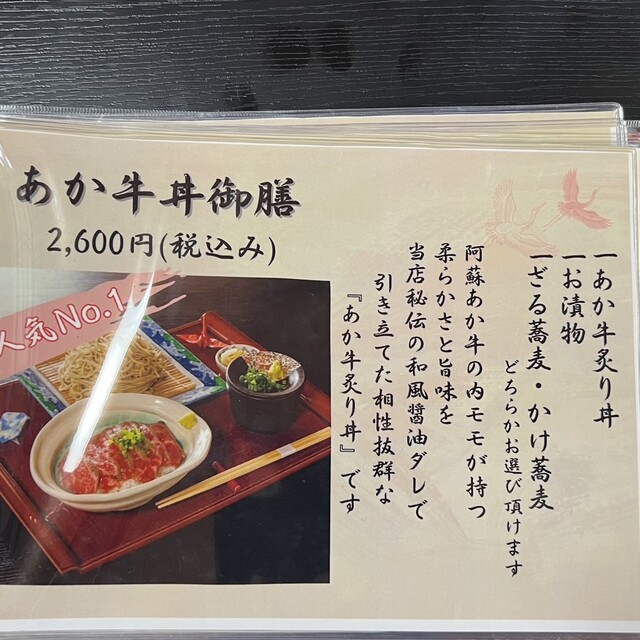 あか牛丼御膳
2,600円(税込み)
人気No.1
一あか牛炙り丼
一お漬物
一ざる蕎麦・かけ蕎麦
どちらかお選び頂けます
阿蘇あか牛の内モモが持つ
柔らかさと旨味を
当店秘伝の和風醤油ダレで
引き立てた相性抜群な
『あか牛炙り丼』です